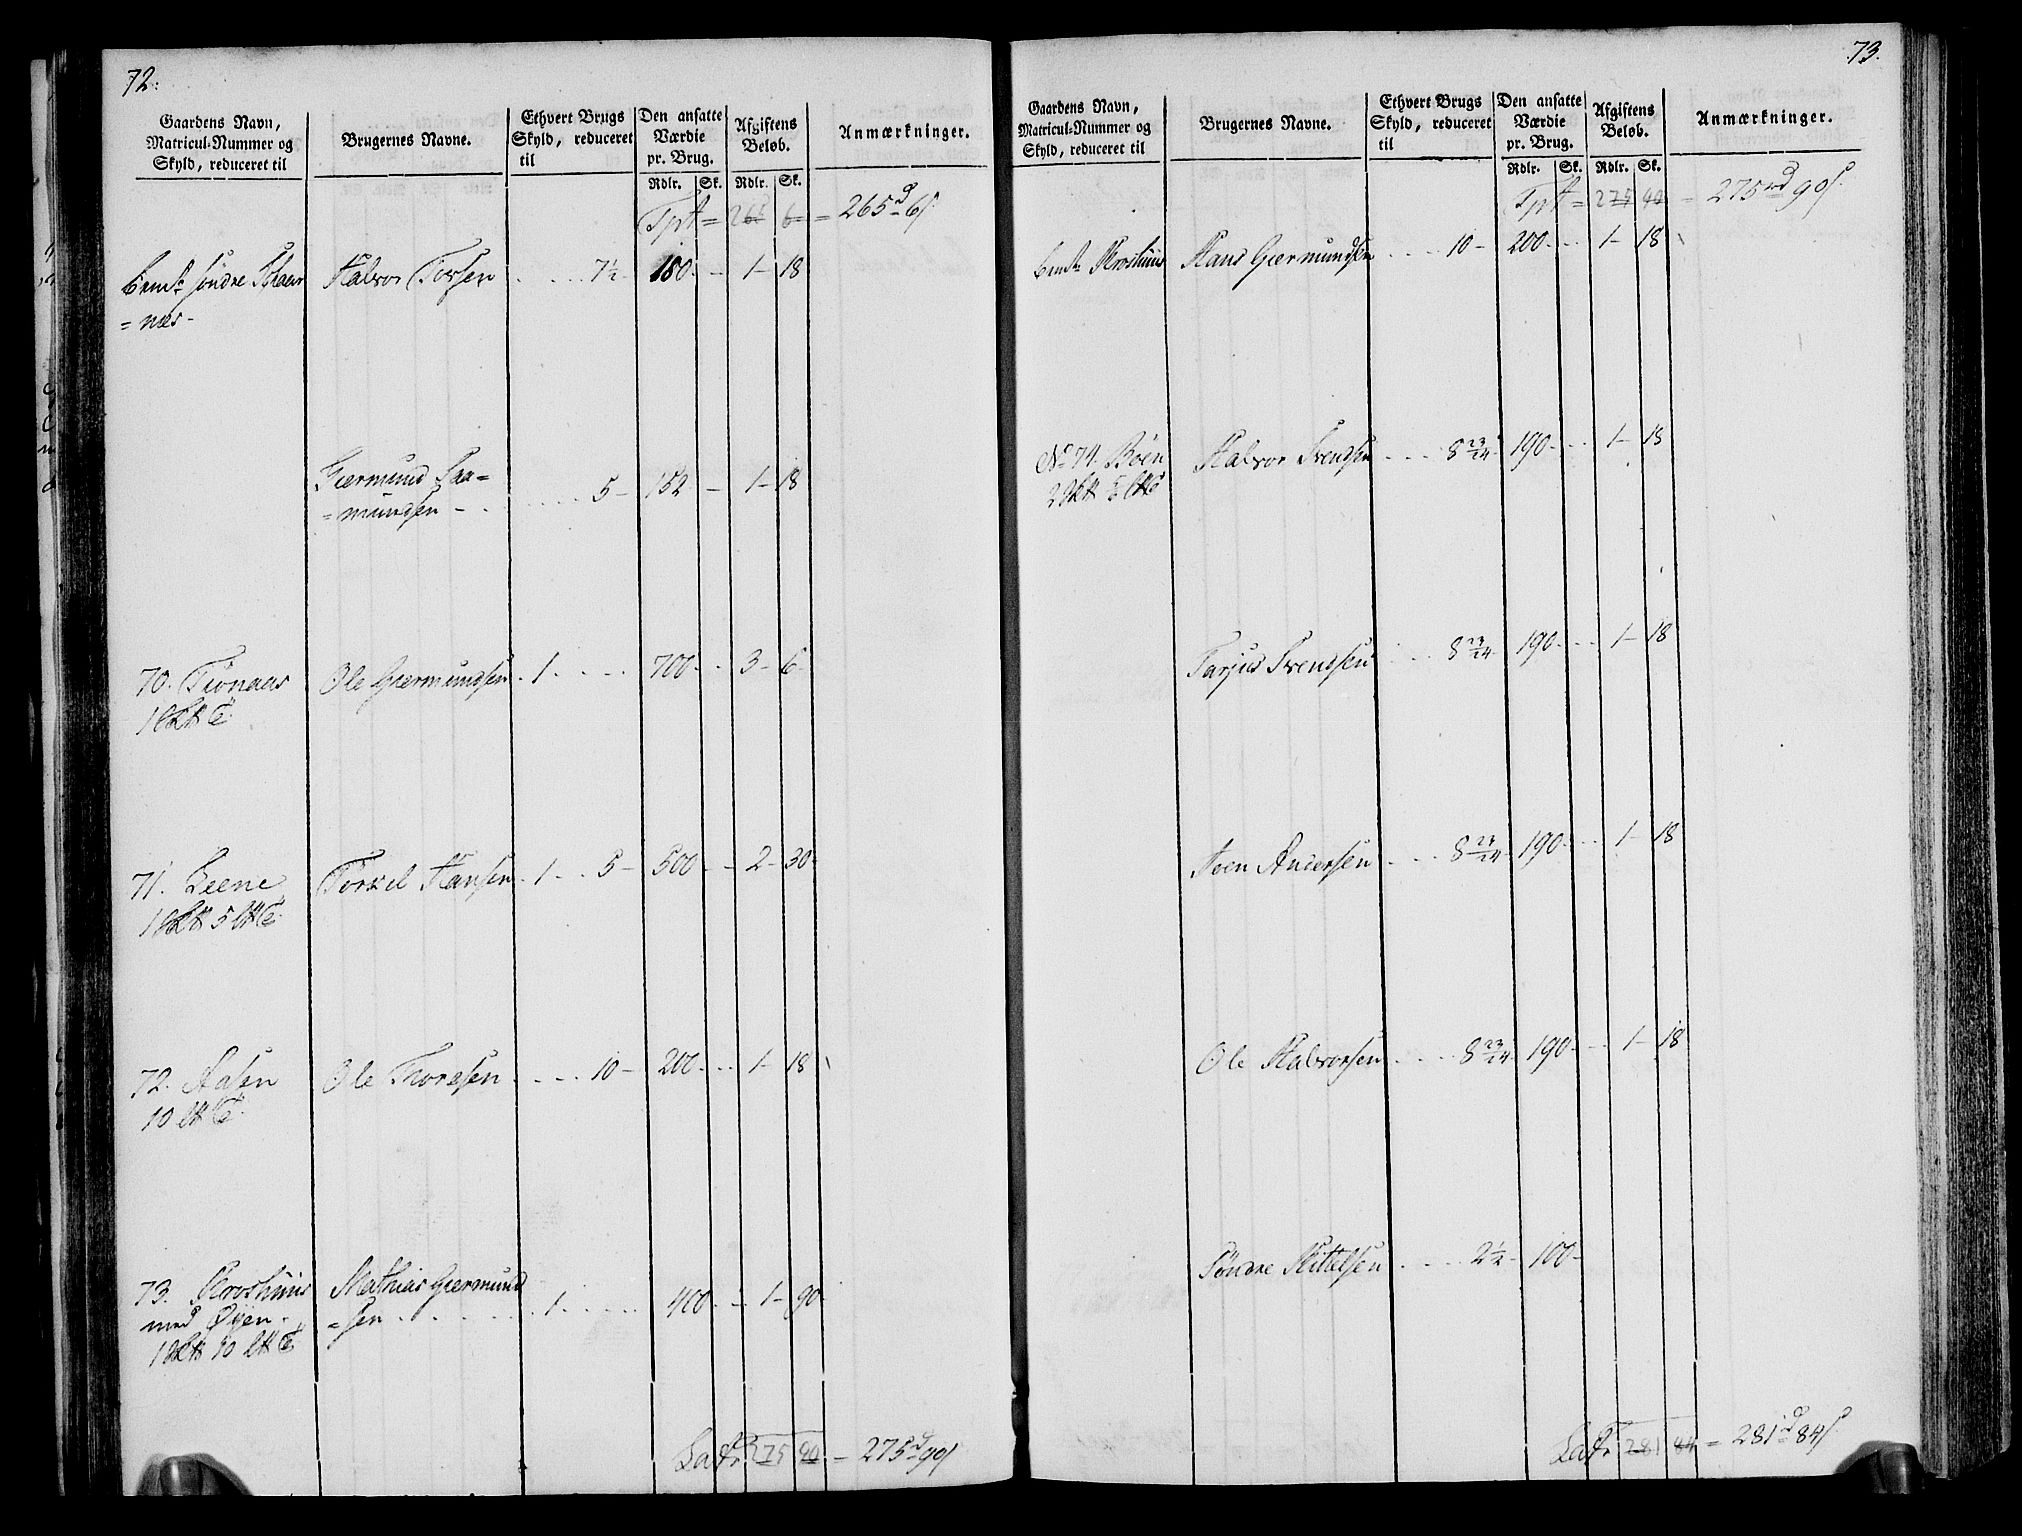 72.
Gaardens Navn,
Matricul-Nummer og
Skyld, reduceret til
Brugernes Navne.
Ethvert Brugs
Skyld, reduceret
til
Den ansatte
Værdie
pr. Brug.
Rdlr. Sk.
Afgiftens
Beløb.
Rdlr. Sk.
Anmærkninger.
Tpt = 265 6 = 265 d 6 s
søndre
=næs - Halvor Torsen . . . . 7½ 180 - 1 - 18
Giermund Saa=
=mundsen - . . . . 5 - 152 - 1 - 18
70. Tiønaas Ole Giermundsen . 1 . . . . 700 - 3 - 6
71. Leene Torkel Hansen . 1 . . 5 - 500 - 2 - 30
72. Aasen Ole Thoresen . . . . 10 - 200 - 1 - 18
10
73. Kroshuus Mathias Giermund
med Øyen =sen . . . . . 1 . . . . 400 - 1 - 90
Latr 275 90 = 275 d 90 s
73.
Gaardens Navn,
Matricul-Nummer og
Skyld, reduceret til
Brugernes Navne.
Ethvert Brugs
Skyld, reduceret
til
Den ansatte
Værdie
pr. Brug.
Rdlr. Sk.
Afgiftens
Beløb.
Rdlr. Sk.
Anmærkninger.
Tpt = 275 90 = 275 rd 90 s.
Kroshuus Hans Giermundsen . . . . 10 - 200 - 1 - 18
No 74. Böen Halvor Svendsen . . . 8 23/24 190 - 1 - 18
Tarjus Svendsen . . . 8 23/24 190 - 1 - 18
Andersen . . . 8 23/24 190 - 1 - 18
Ole Halvorsen . . . 8 23/24 190 - 1 - 18
Söndre Kittelsen . . . . 2½ - 100 -
Latr 281 84 = 281 d 84 s